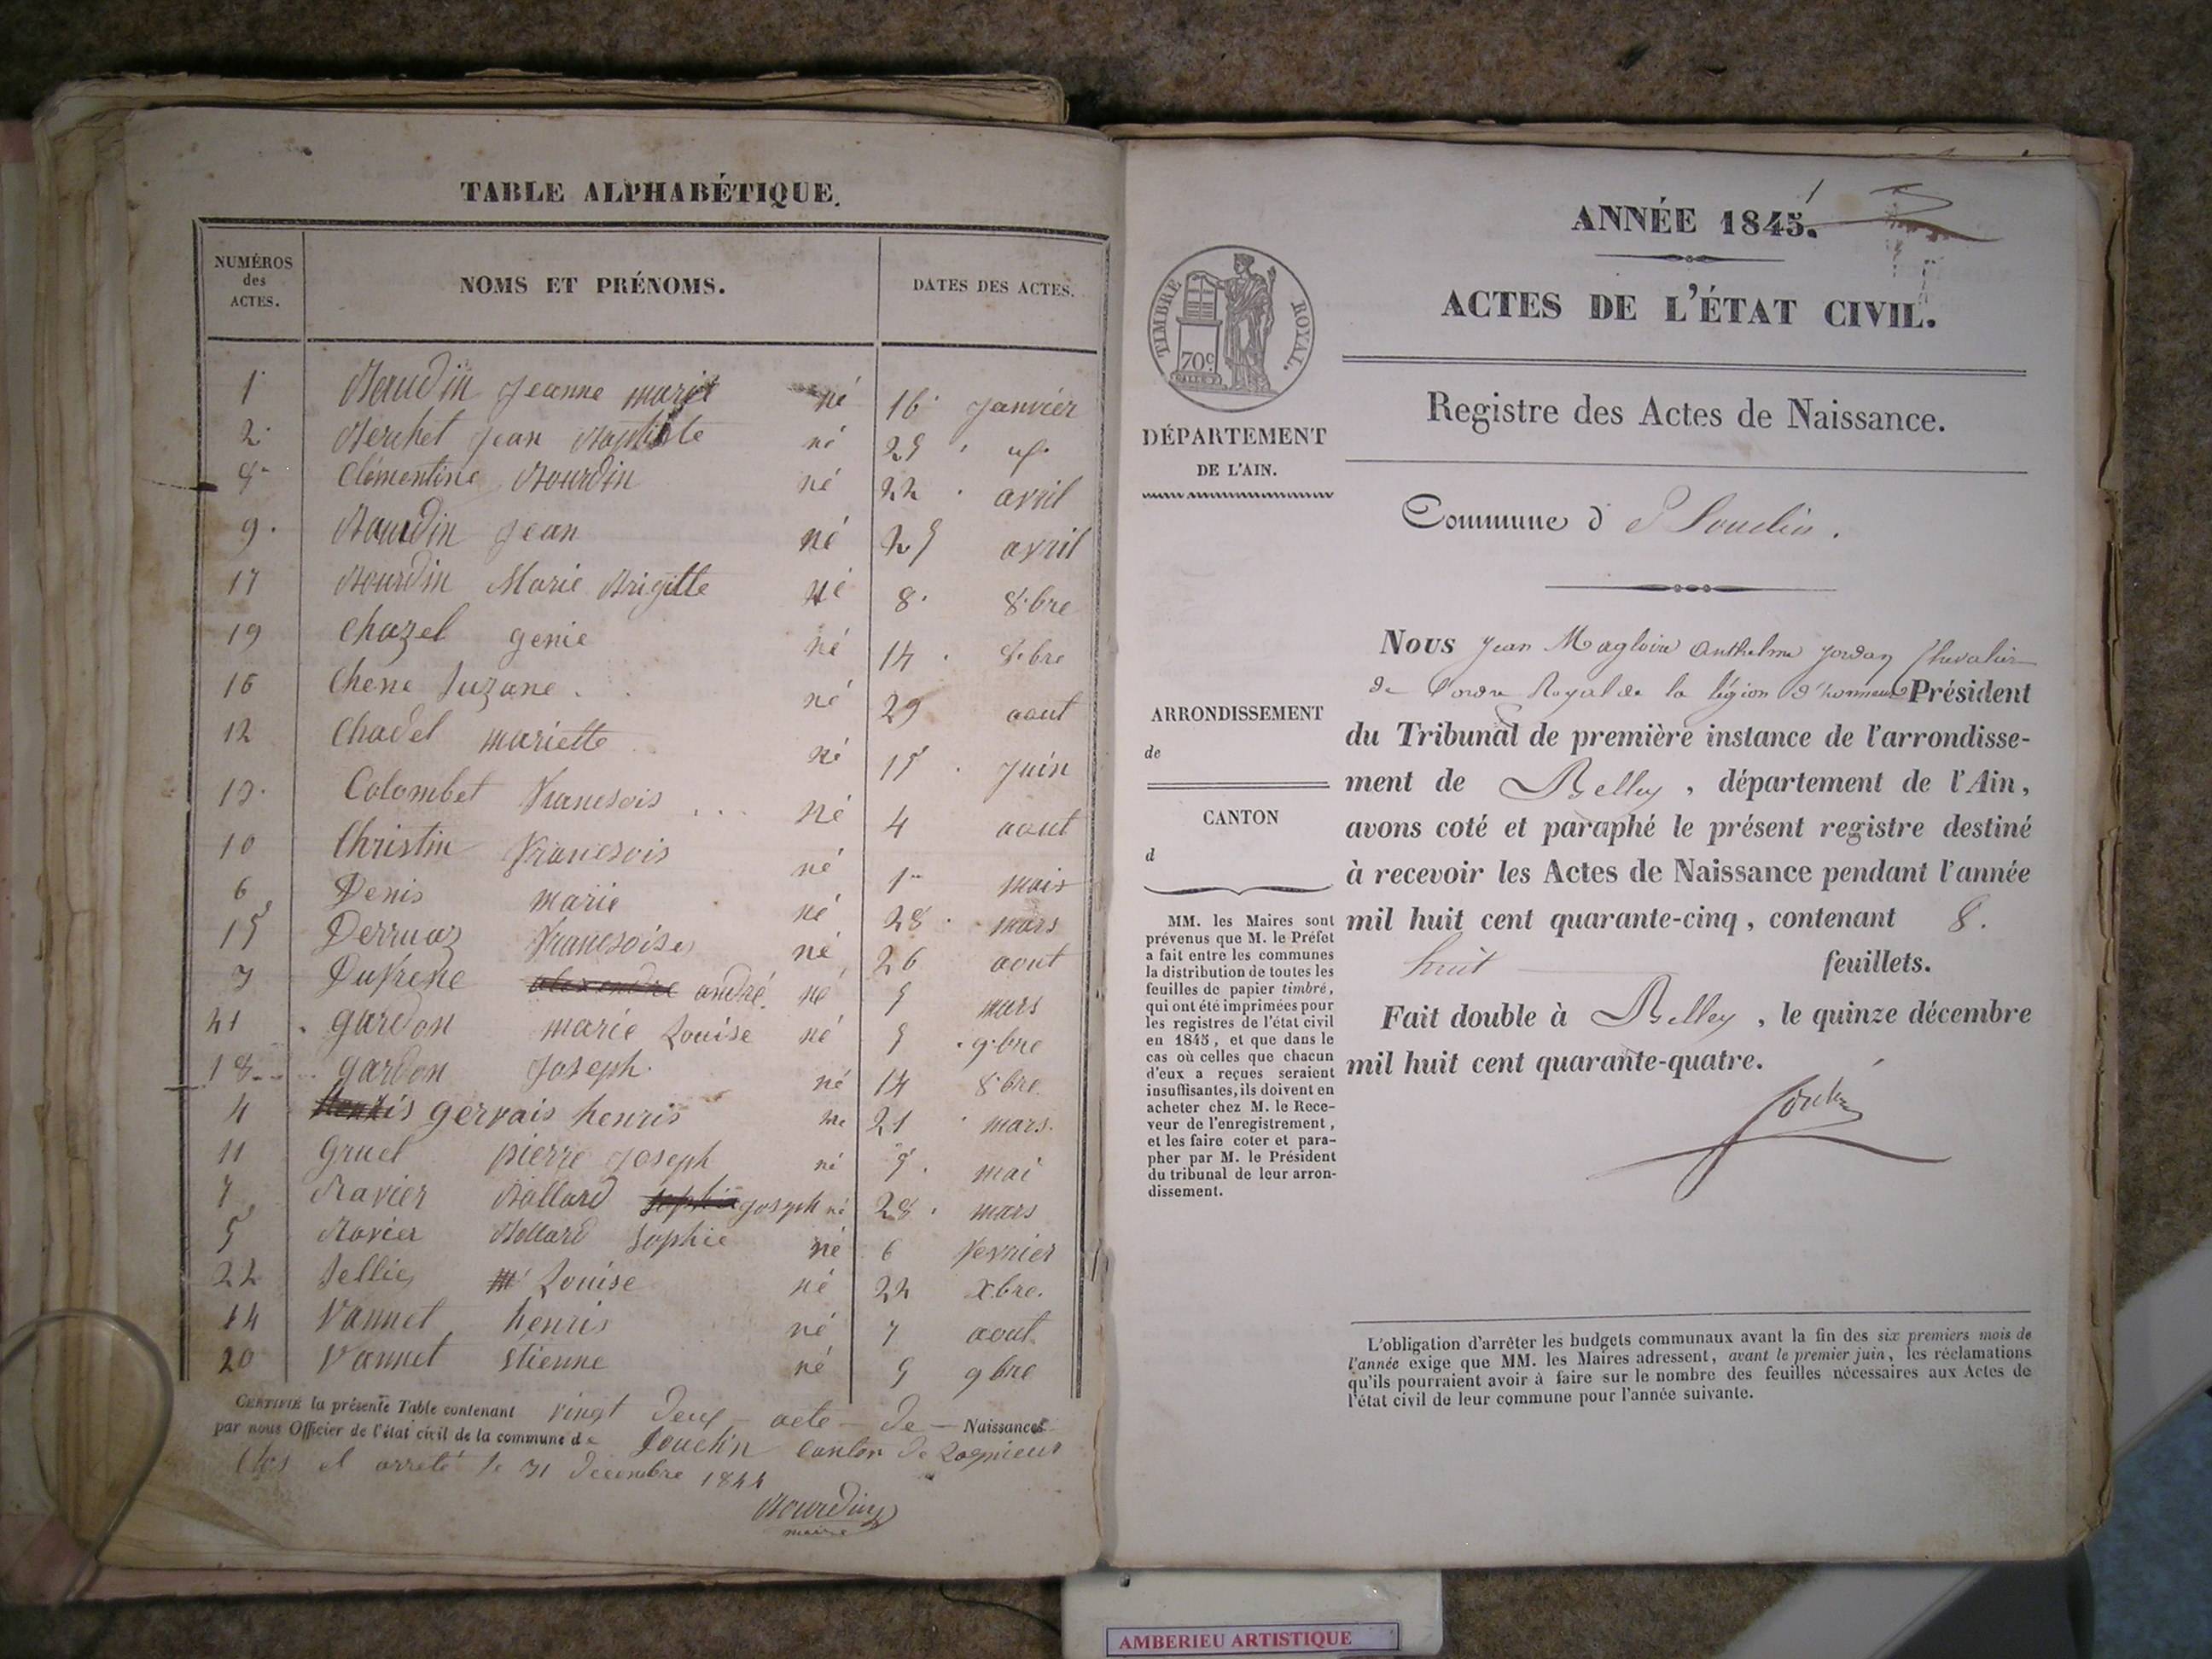 TABLE ALPHABÉTIQUE.
NUMÉROS des ACTES.
NOMS ET PRÉNOMS.
DATES DES ACTES.
1 Baudin Jeanne marie né 16 Janvier
2 Berchet Jean Baptiste né 25
8 Clémentine Bourdin né 22 avril
9 Baudin Jean né 25 avril
17 Bourdin Marie Brigitte né 8 8.bre
19 Chazel genie né 14 8.bre
16 Chene Suzane né 29 aout
12 Chadel mariette né 15 Juin
13 Colombet francsois né 4 aout
10 Christin francsois né 1er mais
6 Denis marie né 28 mars
15 Derruaz francsoise né 26 aout
3 Dufrene andré né 5 mars
21 gardon marie Louise né 5 9.bre
18 gardon Joseph né 14 8.bre
4 gervais henris né 21 mars
11 Gruel pierre Joseph né 5 mai
7 Ravier Bollard Joseph né 28 mars
5 Ravier Bollard Sophie né 6 fevrier
22 Sellie Louise né 22 xbre.
14 Vannet henris né 7 aout
20 Vannet Etienne né 5 9bre
CERTIFIÉ la présente Table contenant vingt deux acte de Naissances
par nous Officier de l'état civil de la commune de Souclin Canton de Lagnieur
Clos et arreté le 31 decembre 1844
Bourdin
maire
ANNÉE 1845.
ACTES DE L'ÉTAT CIVIL.
TIMBRE ROYAL.
70c
Registre des Actes de Naissance.
DÉPARTEMENT
DE L'AIN.
Commune d Souclin.
Nous Jean Magloire Anthelme Jordan Chevalier
de l'ordre Royal de la légion d'honneur Président
du Tribunal de première instance de l'arrondisse-
ment de Belley, département de l'Ain,
avons coté et paraphé le présent registre destiné
à recevoir les Actes de Naissance pendant l'année
mil huit cent quarante-cinq, contenant 8.
huit feuillets.
Fait double à Belley, le quinze décembre
mil huit cent quarante-quatre.
ARRONDISSEMENT
de
CANTON
d
MM. les Maires sont
prévenus que M. le Préfet
a fait entre les communes
la distribution de toutes les
feuilles de papier timbré,
qui ont été imprimées pour
les registres de l'état civil
en 1845, et que dans le
cas où celles que chacun
d'eux a reçues seraient
insuffisantes, ils doivent en
acheter chez M. le Rece-
veur de l'enregistrement,
et les faire coter et para-
pher par M. le Président
du tribunal de leur arron-
dissement.
L'obligation d'arrêter les budgets communaux avant la fin des six premiers mois de
l'année exige que MM. les Maires adressent, avant le premier juin, les réclamations
qu'ils pourraient avoir à faire sur le nombre des feuilles nécessaires aux Actes de
l'état civil de leur commune pour l'année suivante.
AMBERIEU ARTISTIQUE